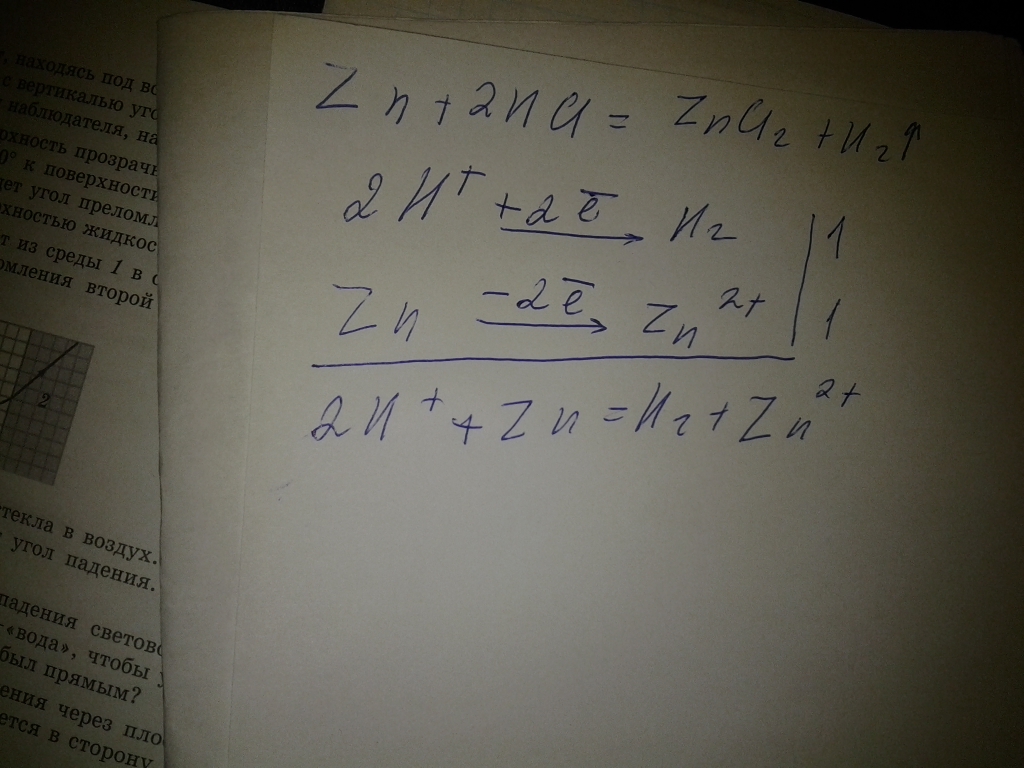 , находясь под во
с вертикалью уго
наблюдателя, на
рхность прозрачн
0° к поверхности
дет угол преломл
рхностью жидкос
т из среды 1 в с
омления второй
2
стекла в воздух.
угол падения.
падения светово
«вода», чтобы у
был прямым?
ения через пло
ется в сторону
Zn + 2HCl = ZnCl₂ + H₂↑
2H⁺ +2ē → H₂ | 1
Zn −2ē → Zn²⁺ | 1
2H⁺ + Zn = H₂ + Zn²⁺